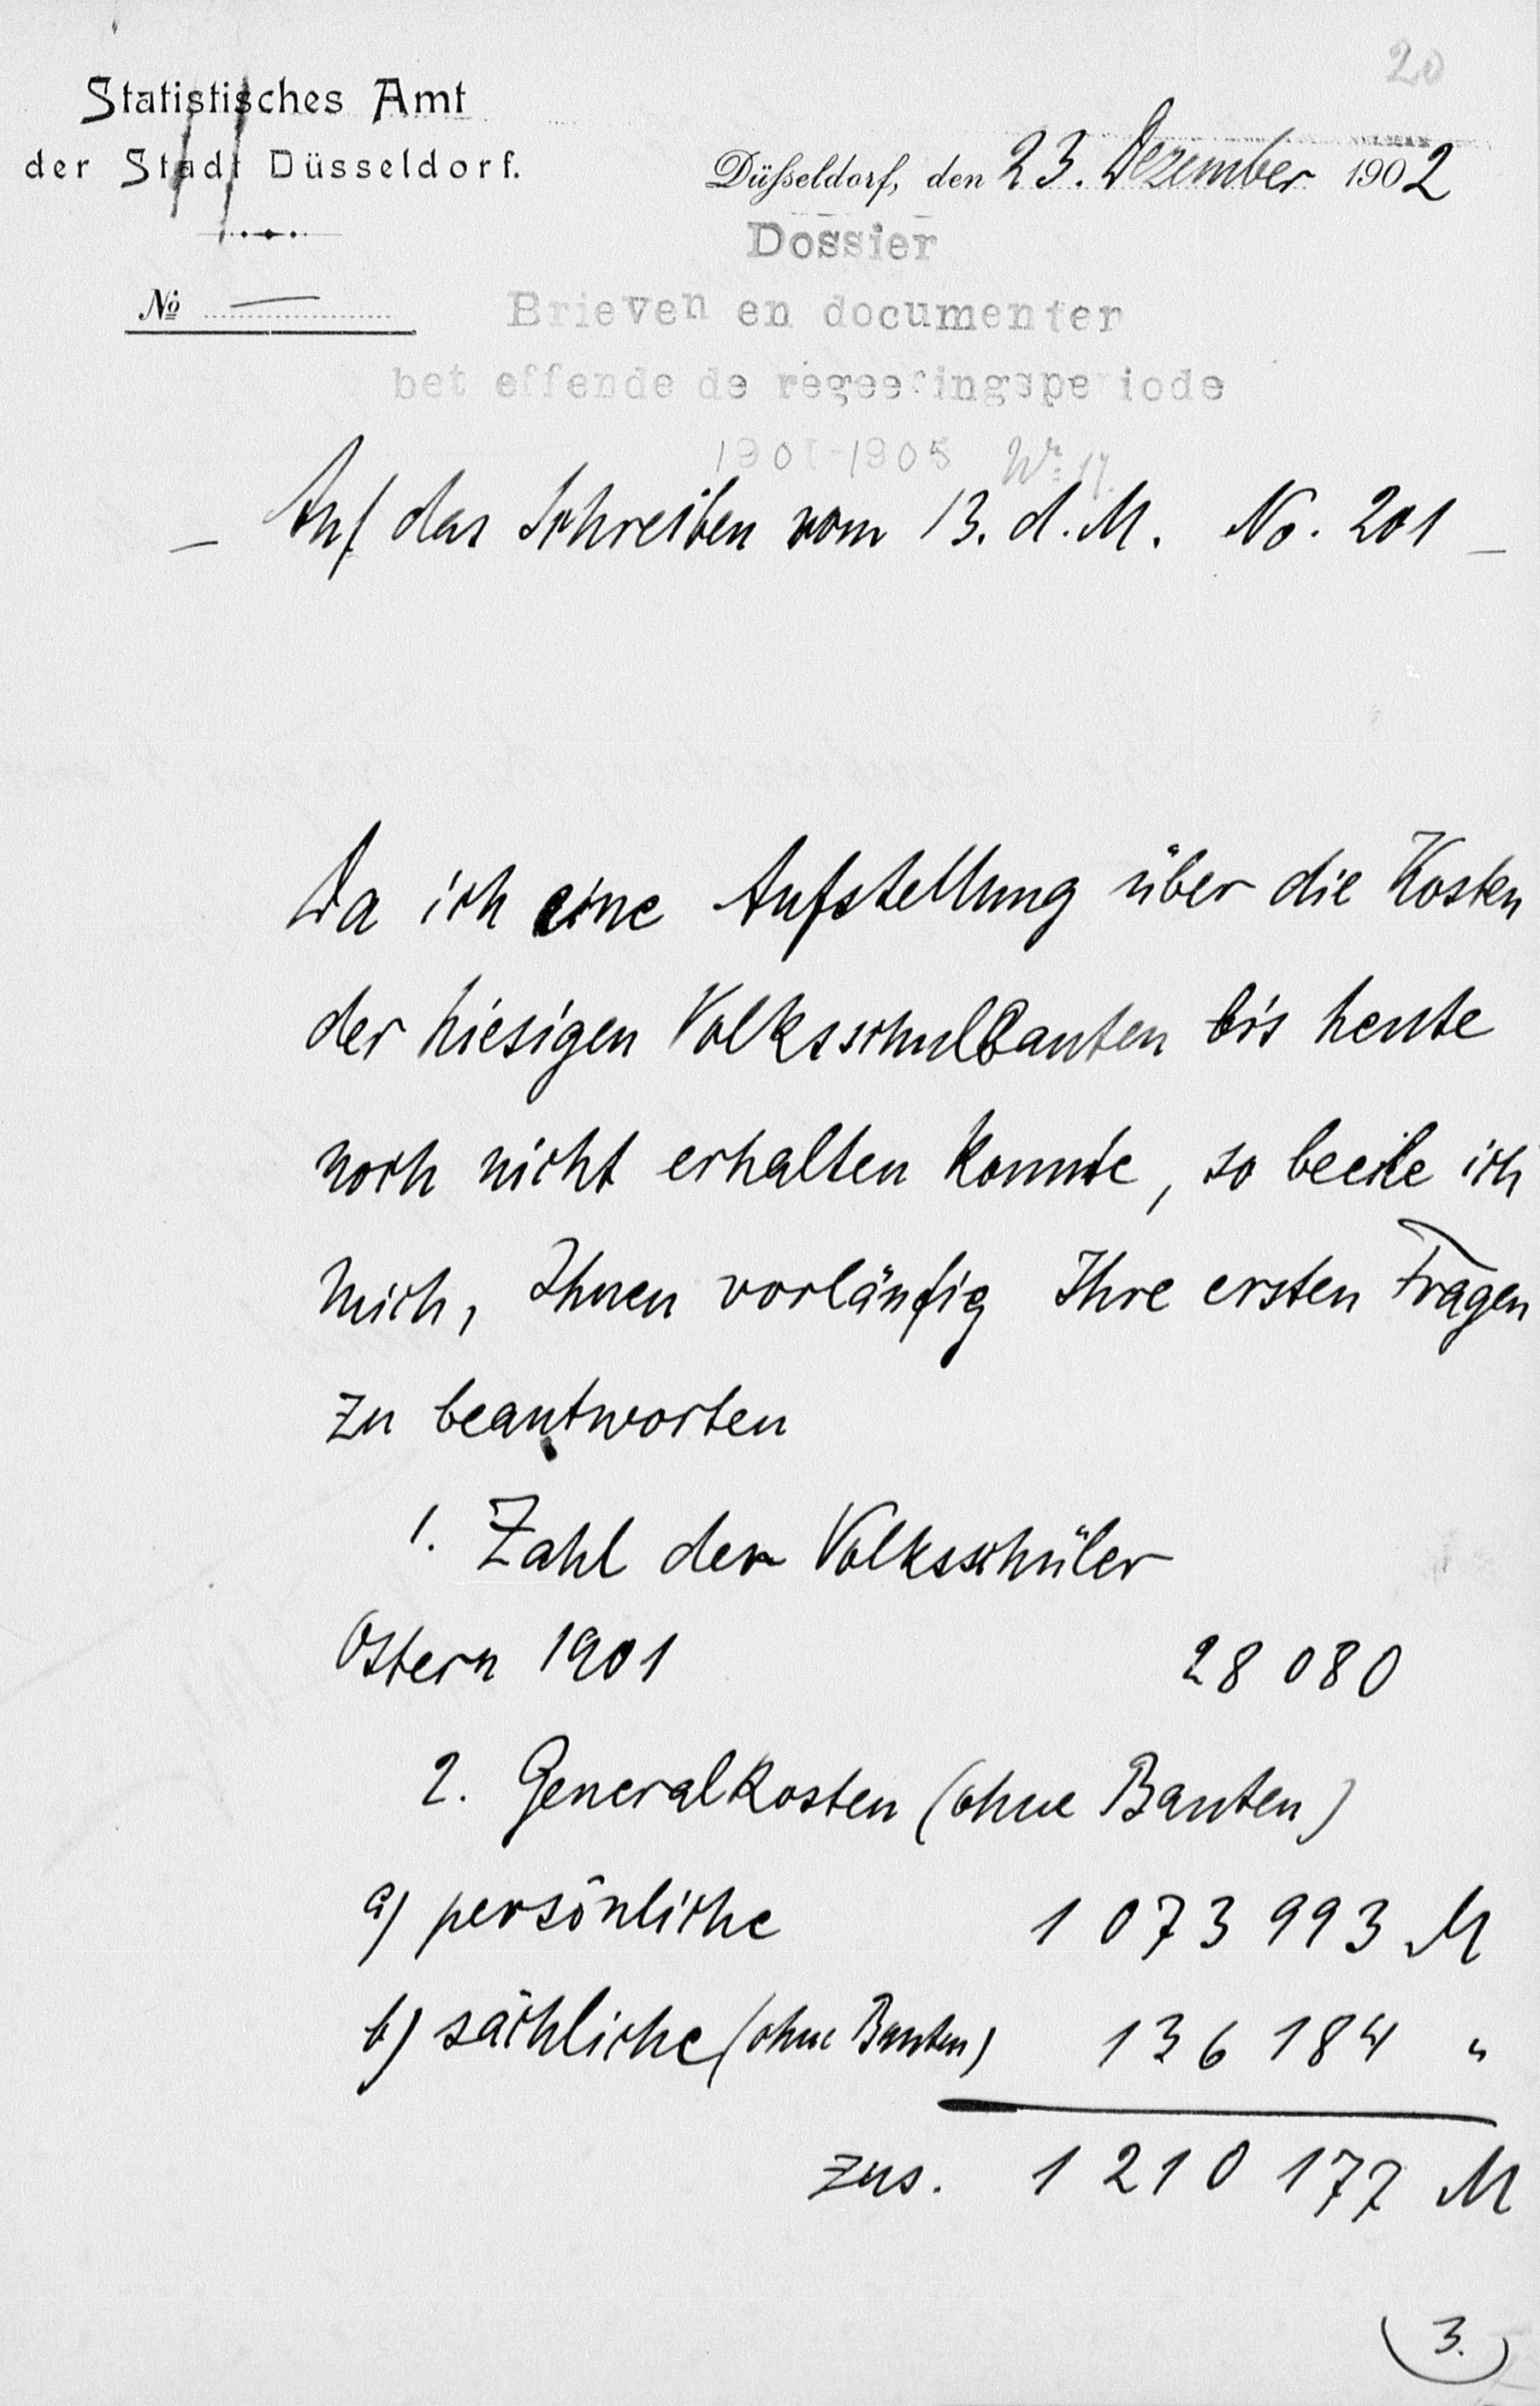 20
Statistisches Amt
der Stadt Düsseldorf.
Düsseldorf, den 23. Dezember 1902
No —
Dossier
Brieven en documenten
betreffende de regeeringsperiode
1901-1905
— Auf das Schreiben vom 13. d. M. No. 201 —
Da ich eine Aufstellung über die Kosten
der hiesigen Volksschulbauten bis heute
noch nicht erhalten konnte, so beeile ich
mich, Ihnen vorläufig Ihre ersten Fragen
zu beantworten
1. Zahl der Volksschüler
Ostern 1901 28 080
2. Generalkosten (ohne Bauten)
a) persönliche 1 073 993 M
b) sächliche (ohne Bauten) 136 184 "
zus. 1 210 177 M
3.